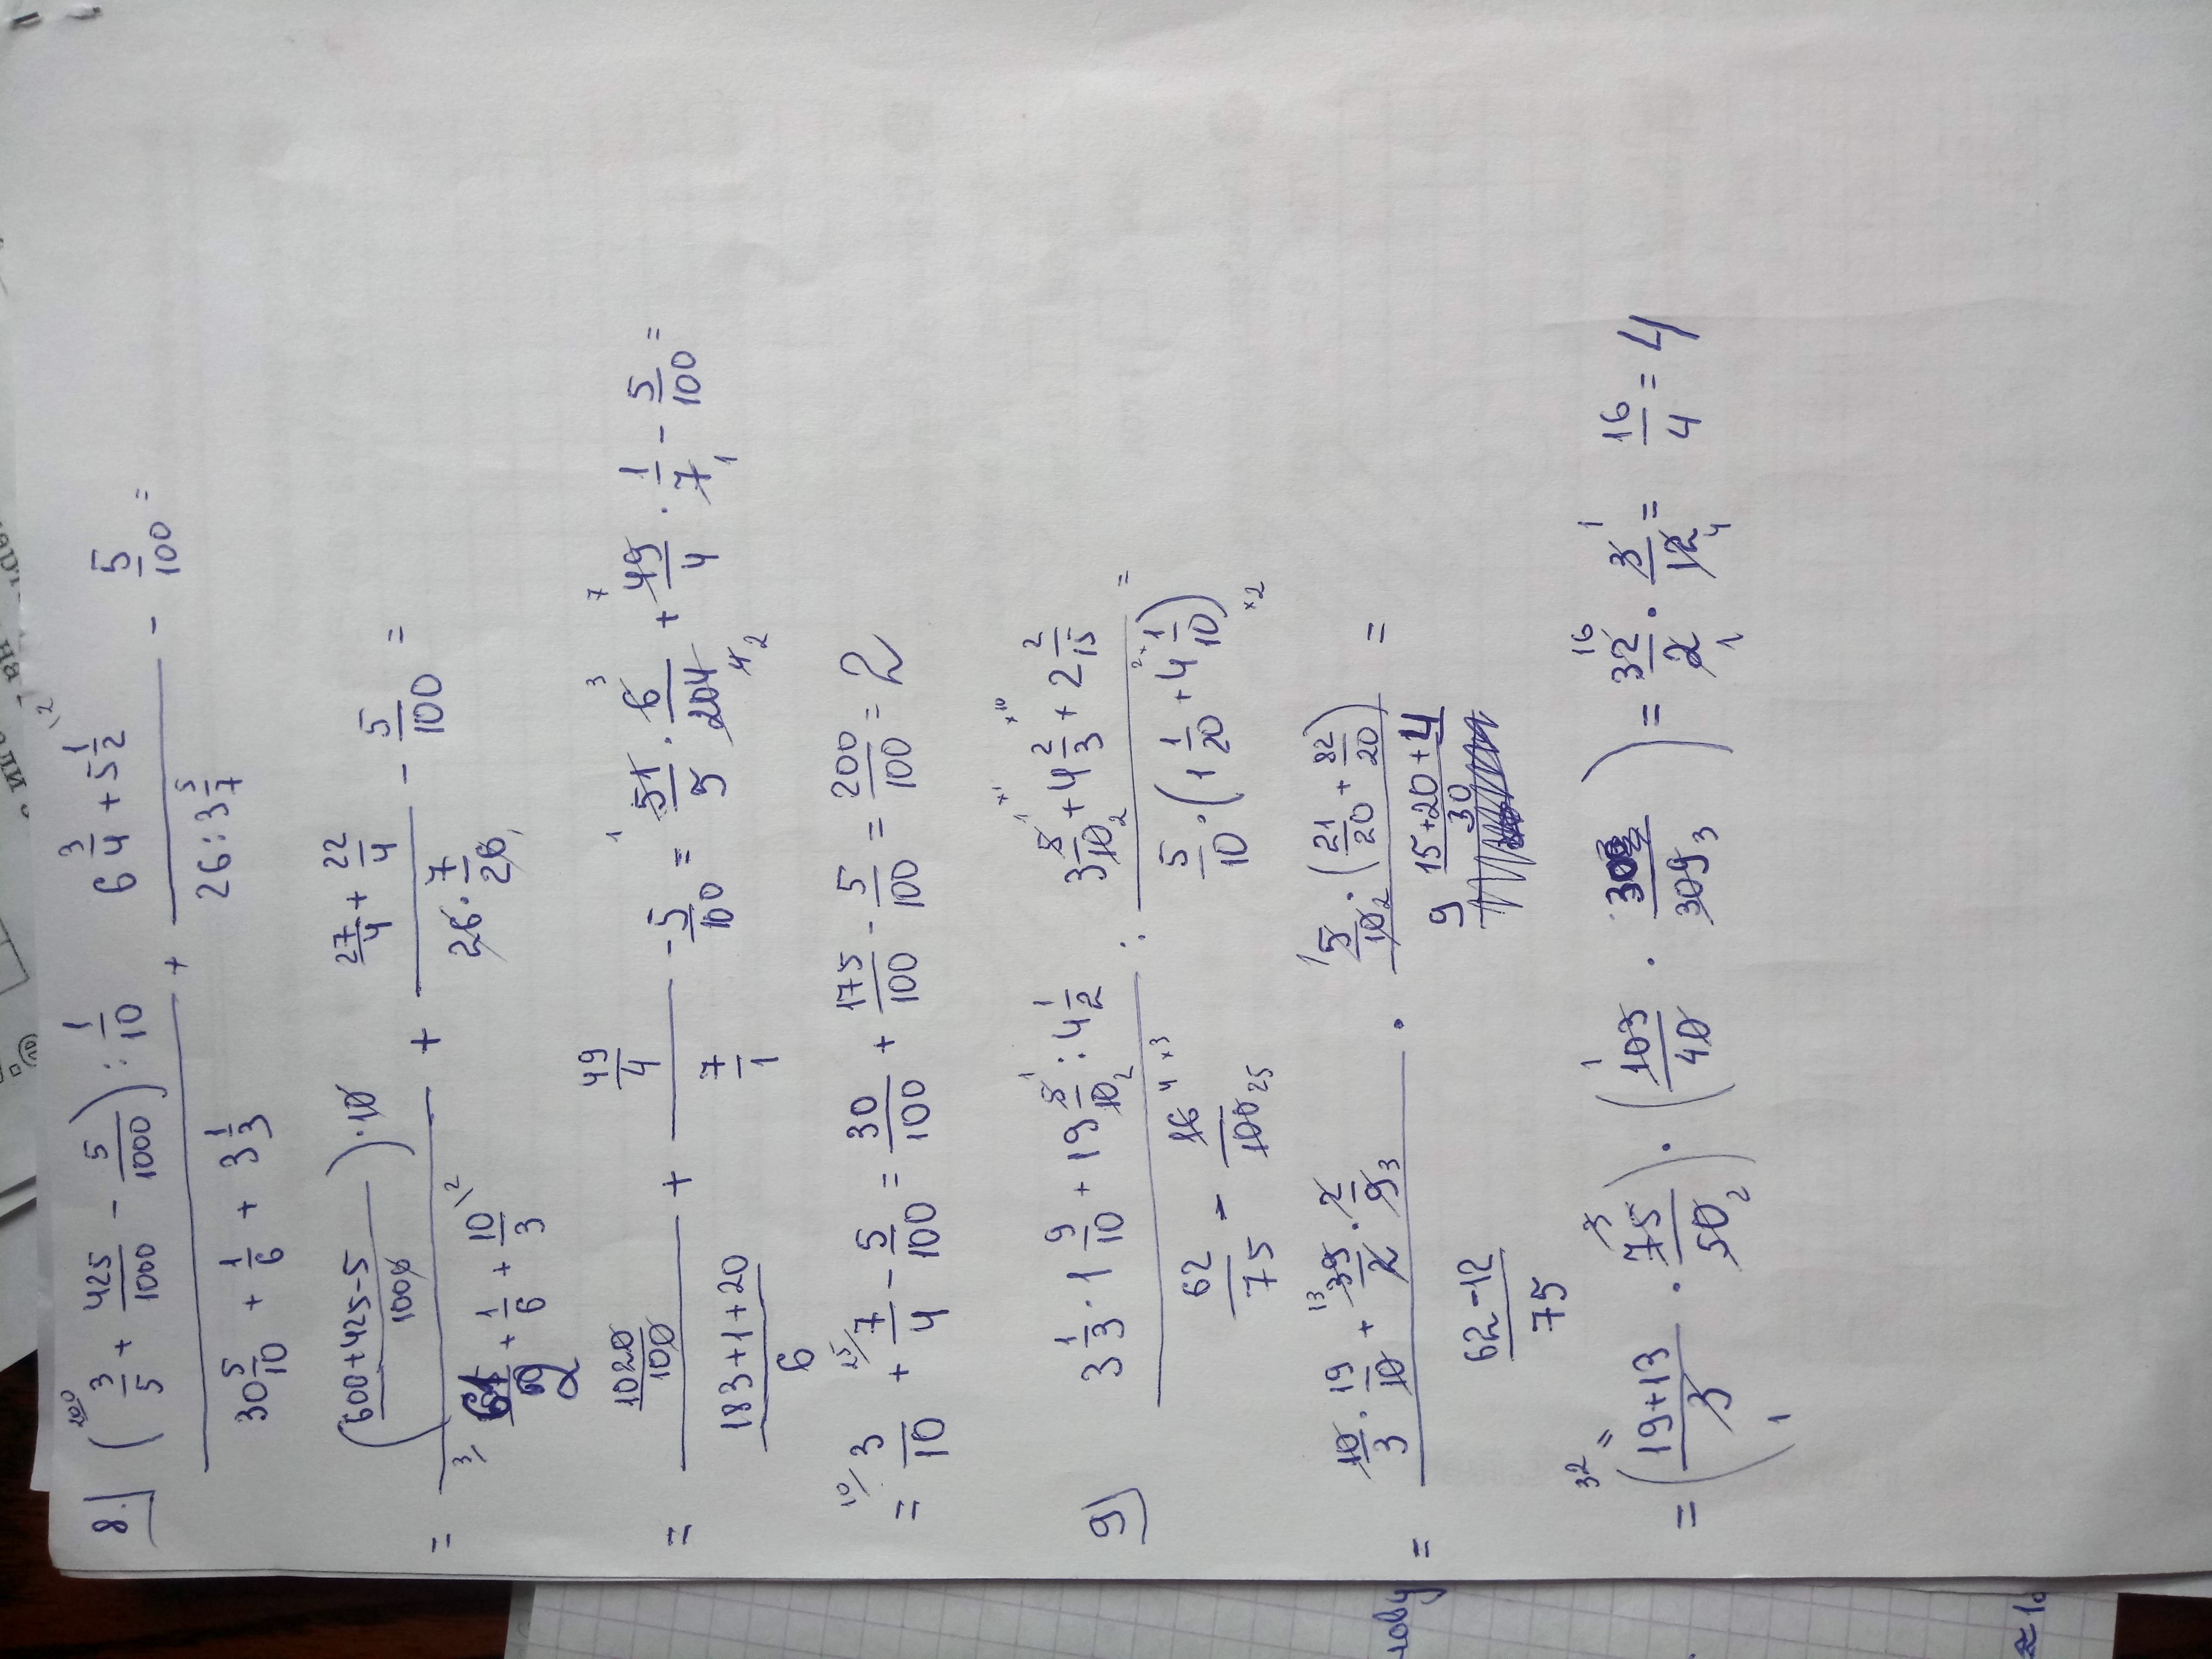 8.) (3/5 + 425/1000 - 5/1000) : 1/10 / 30 5/10 + 1/6 + 3 1/3 + 6 3/4 + 5 1/2 / 26 : 3 5/7 - 5/100 =
= (600+425-5/1000) · 10 / 61/2 + 1/6 + 10/3 + 27/4 + 22/4 / 26 · 7/26 - 5/100 =
= 1020/100 / 183+1+20/6 + 49/4 / 7/1 - 5/100 = 51/5 · 6/204 + 49/4 · 1/7 - 5/100 =
= 3/10 + 7/4 - 5/100 = 30/100 + 175/100 - 5/100 = 200/100 = 2
9) 3 1/3 · 1 9/10 + 19 5/10 : 4 1/2 / 62/75 - 16/100 : 3 5/10 + 4 2/3 + 2 2/15 / 5/10 · (1 1/20 + 4 1/10) =
= 10/3 · 19/10 + 39/2 · 2/9 / 62-12/75 · 5/10 · (21/20 + 82/20) / 9 15+20+4/30 =
= (19+13/3 · 75/50) · (103/40 · 30/309) = 32/2 · 3/12 = 16/4 = 4